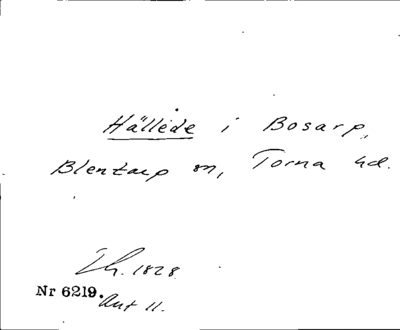 Hällede i Bosarp,
Blentarp sn, Torna hd.
Th. 1828.
Nr 6219.
Ant 11.